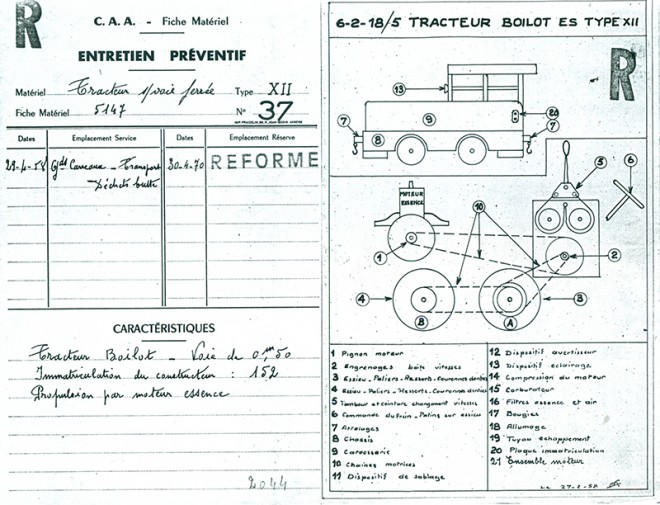 R
C. A. A. - Fiche Matériel
ENTRETIEN PRÉVENTIF
Matériel Tracteur s/voie ferrée Type XII
Fiche Matériel 5147 N° 37
Dates Emplacement Service Dates Emplacement Réserve
Gds Carreaux - Transport 30-4-70 REFORME
Déchets butte
CARACTÉRISTIQUES
Tracteur Boilot - Voie de 0,m50
Immatriculation du constructeur : 152
Propulsion par moteur essence
2044
6-2-18/5 TRACTEUR BOILOT ES TYPE XII
R
13
9
20
7
8
7
MOTEUR
ESSENCE
10
5
6
1
2
4
B
A
3
1 Pignon moteur
2 Engrenages boîte vitesses
3 Essieu - Paliers - Ressorts - Couronnes dentées
4 Essieu - Paliers - Ressorts - Couronnes dentées
5 Tambour et ceinture changement vitesses
6 Commande du frein - Patins sur essieu
7 Attelages
8 Chassis
9 Carrosserie
10 Chaînes motrices
11 Dispositif de sablage
12 Dispositif avertisseur
13 Dispositif eclairage
14 Compression du moteur
15 Carburateur
16 Filtres essence et air
17 Bougies
18 Allumage
19 Tuyau echappement
20 Plaque immatriculation
21 Ensemble moteur
Le 27-2-58